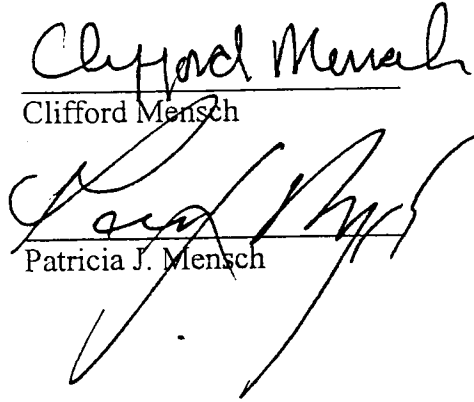 Clifford Mensch
Clifford Mensch
Patricia J. Mensch